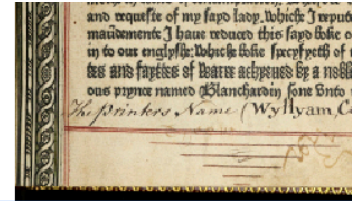 and requeste of my sayd lady. whiche I repute
maūdemente I haue reduced this sayd boke o
in to our englysshe: whiche boke specyfyeth of
tes and faytes of warre achyeued by a nobl
ous prynce named Blanchardin sone vnto
The Printers Name (Wyllyam, Ca